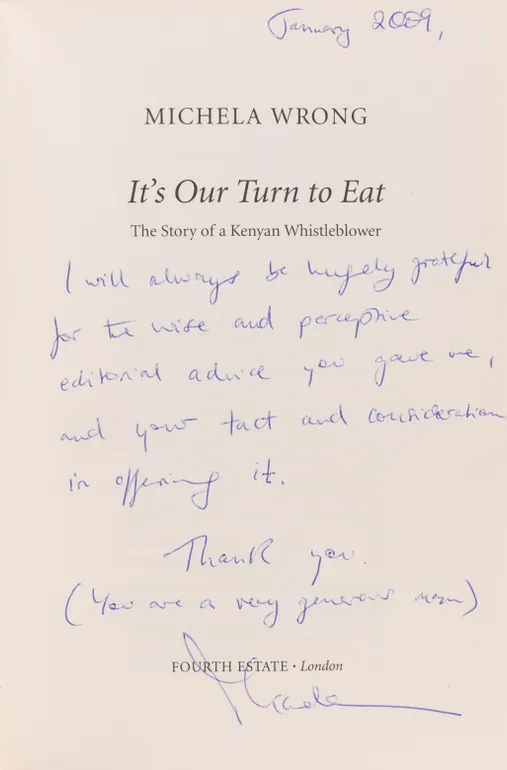 January 2009,
MICHELA WRONG
It's Our Turn to Eat
The Story of a Kenyan Whistleblower
I will always be hugely grateful
for the wise and perceptive
editorial advice you gave me,
and your tact and consideration
in offering it.
Thank you.
(You are a very generous man)
FOURTH ESTATE • London
Michela